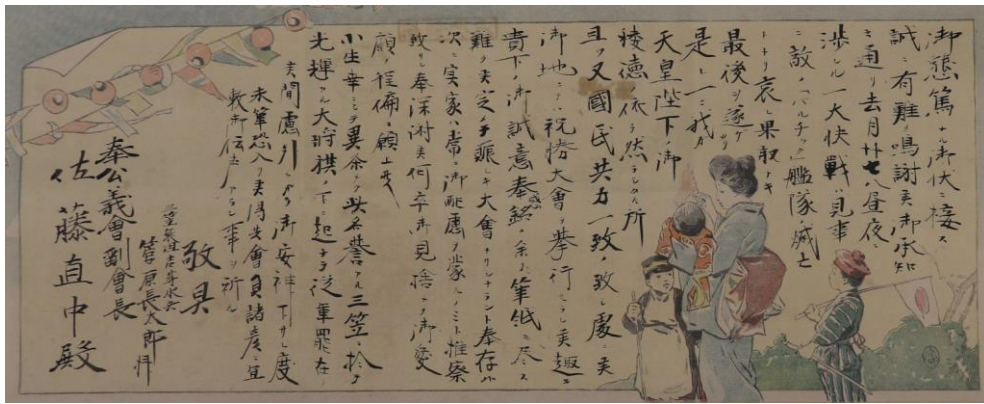 御懇篤ナル御状ニ接ス
誠ニ有難ク鳴謝ス御承知
ノ通リ去月廿七八昼夜ニ
渉レル一大快戦ハ見事
ニ敵ノ「バルチック」艦隊ヲ滅シ
トナリ哀レ果敢ナキ
最後ヲ遂ゲ
是レ一ニ我ガ
天皇陛下ノ御
稜徳ノ依ラ然ラシムル所
且ツ又國民共力一致ノ致ス處ニ
御地ニテ祝捷大會ヲ挙行セラレ趣
貴下ノ御誠意奉銘ノ余リ筆紙ニ尽ス
難ク定メテ賑シキ大會ナリシナラント奉存候
次ニ実家ハ常ニ御配慮ヲ蒙レルノミト推察
致シ奉深謝何卒御見捨ナク御愛
顧ノ程偏ニ願上
小生幸ニシテ異余ナク栄誉アル三笠ニ於テ
光輝アル大将旗ノ下ニ起テ従軍罷在
間慮引シナガラ御安神下サレ度
末筆恐入リ共會員諸彦ニ宜
敷御伝声アラン事ヲ祈ル
敬具
菅原長太郎拝
奉公義會副會長
佐藤直中殿